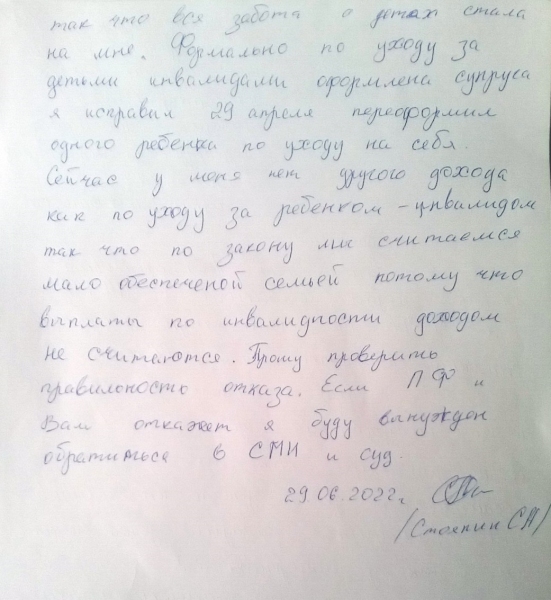 так что вся забота о детях стала
на мне. Формально по уходу за
детьми инвалидами оформлена супруга
я исправил 29 апреля переоформил
одного ребенка по уходу на себя.
Сейчас у меня нет другого дохода
как по уходу за ребенком-инвалидом
так что по закону мы считаемся
мало обеспеченой семьей потому что
выплаты по инвалидности доходом
не считаются. Прошу проверить
правильность отказа. Если ПФ и
Вам откажет я буду вынужден
обратиться в СМИ и суд.
29.06.2022г.